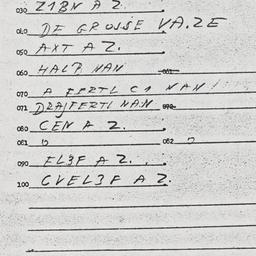 030 Z1BN A Z.
040 DE GROSSE VA.ZE
050 AXT A Z.
060 HALP NAN 061
070 A FERTL C1 NAN!
071 DRAJFERTL NAN 072
080 CEN A Z.
081 082
090 ELBF A Z.
100 CVELBF A Z.